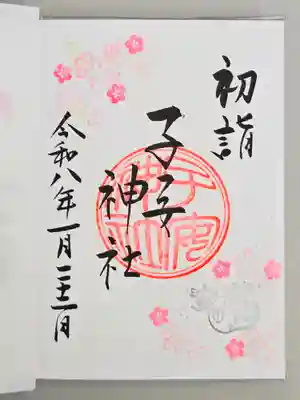 初詣
子安神社
令和八年一月二十一日